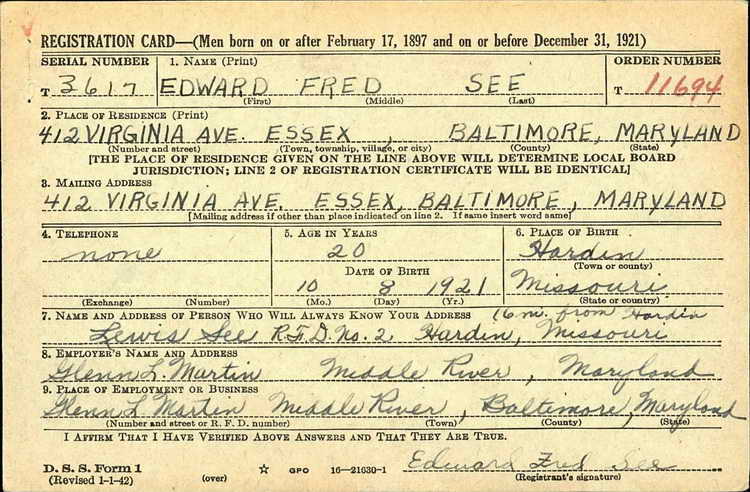 REGISTRATION CARD—(Men born on or after February 17, 1897 and on or before December 31, 1921)
SERIAL NUMBER 1. NAME (Print) ORDER NUMBER
T 3617 EDWARD FRED SEE T 11694
(First) (Middle) (Last)
2. PLACE OF RESIDENCE (Print)
412 VIRGINIA AVE. ESSEX, BALTIMORE, MARYLAND
(Number and street) (Town, township, village, or city) (County) (State)
[THE PLACE OF RESIDENCE GIVEN ON THE LINE ABOVE WILL DETERMINE LOCAL BOARD
JURISDICTION; LINE 2 OF REGISTRATION CERTIFICATE WILL BE IDENTICAL]
3. MAILING ADDRESS
412 VIRGINIA AVE. ESSEX, BALTIMORE, MARYLAND
[Mailing address if other than place indicated on line 2. If same insert word same]
4. TELEPHONE 5. AGE IN YEARS 6. PLACE OF BIRTH
none 20 Hardin
(Town or county)
DATE OF BIRTH
10 8 1921 Missouri
(Exchange) (Number) (Mo.) (Day) (Yr.) (State or country)
7. NAME AND ADDRESS OF PERSON WHO WILL ALWAYS KNOW YOUR ADDRESS (6 mi. from Hardin
Lewis See R.F.D. No. 2 Hardin, Missouri
8. EMPLOYER'S NAME AND ADDRESS
Glenn L. Martin Middle River, Maryland
9. PLACE OF EMPLOYMENT OR BUSINESS
Glenn L Martin Middle River, Baltimore, Maryland
(Number and street or R. F. D. number) (Town) (County) (State)
I AFFIRM THAT I HAVE VERIFIED ABOVE ANSWERS AND THAT THEY ARE TRUE.
D. S. S. Form 1 GPO 16—21630-1 Edward Fred See
(Revised 1-1-42) (over) (Registrant's signature)